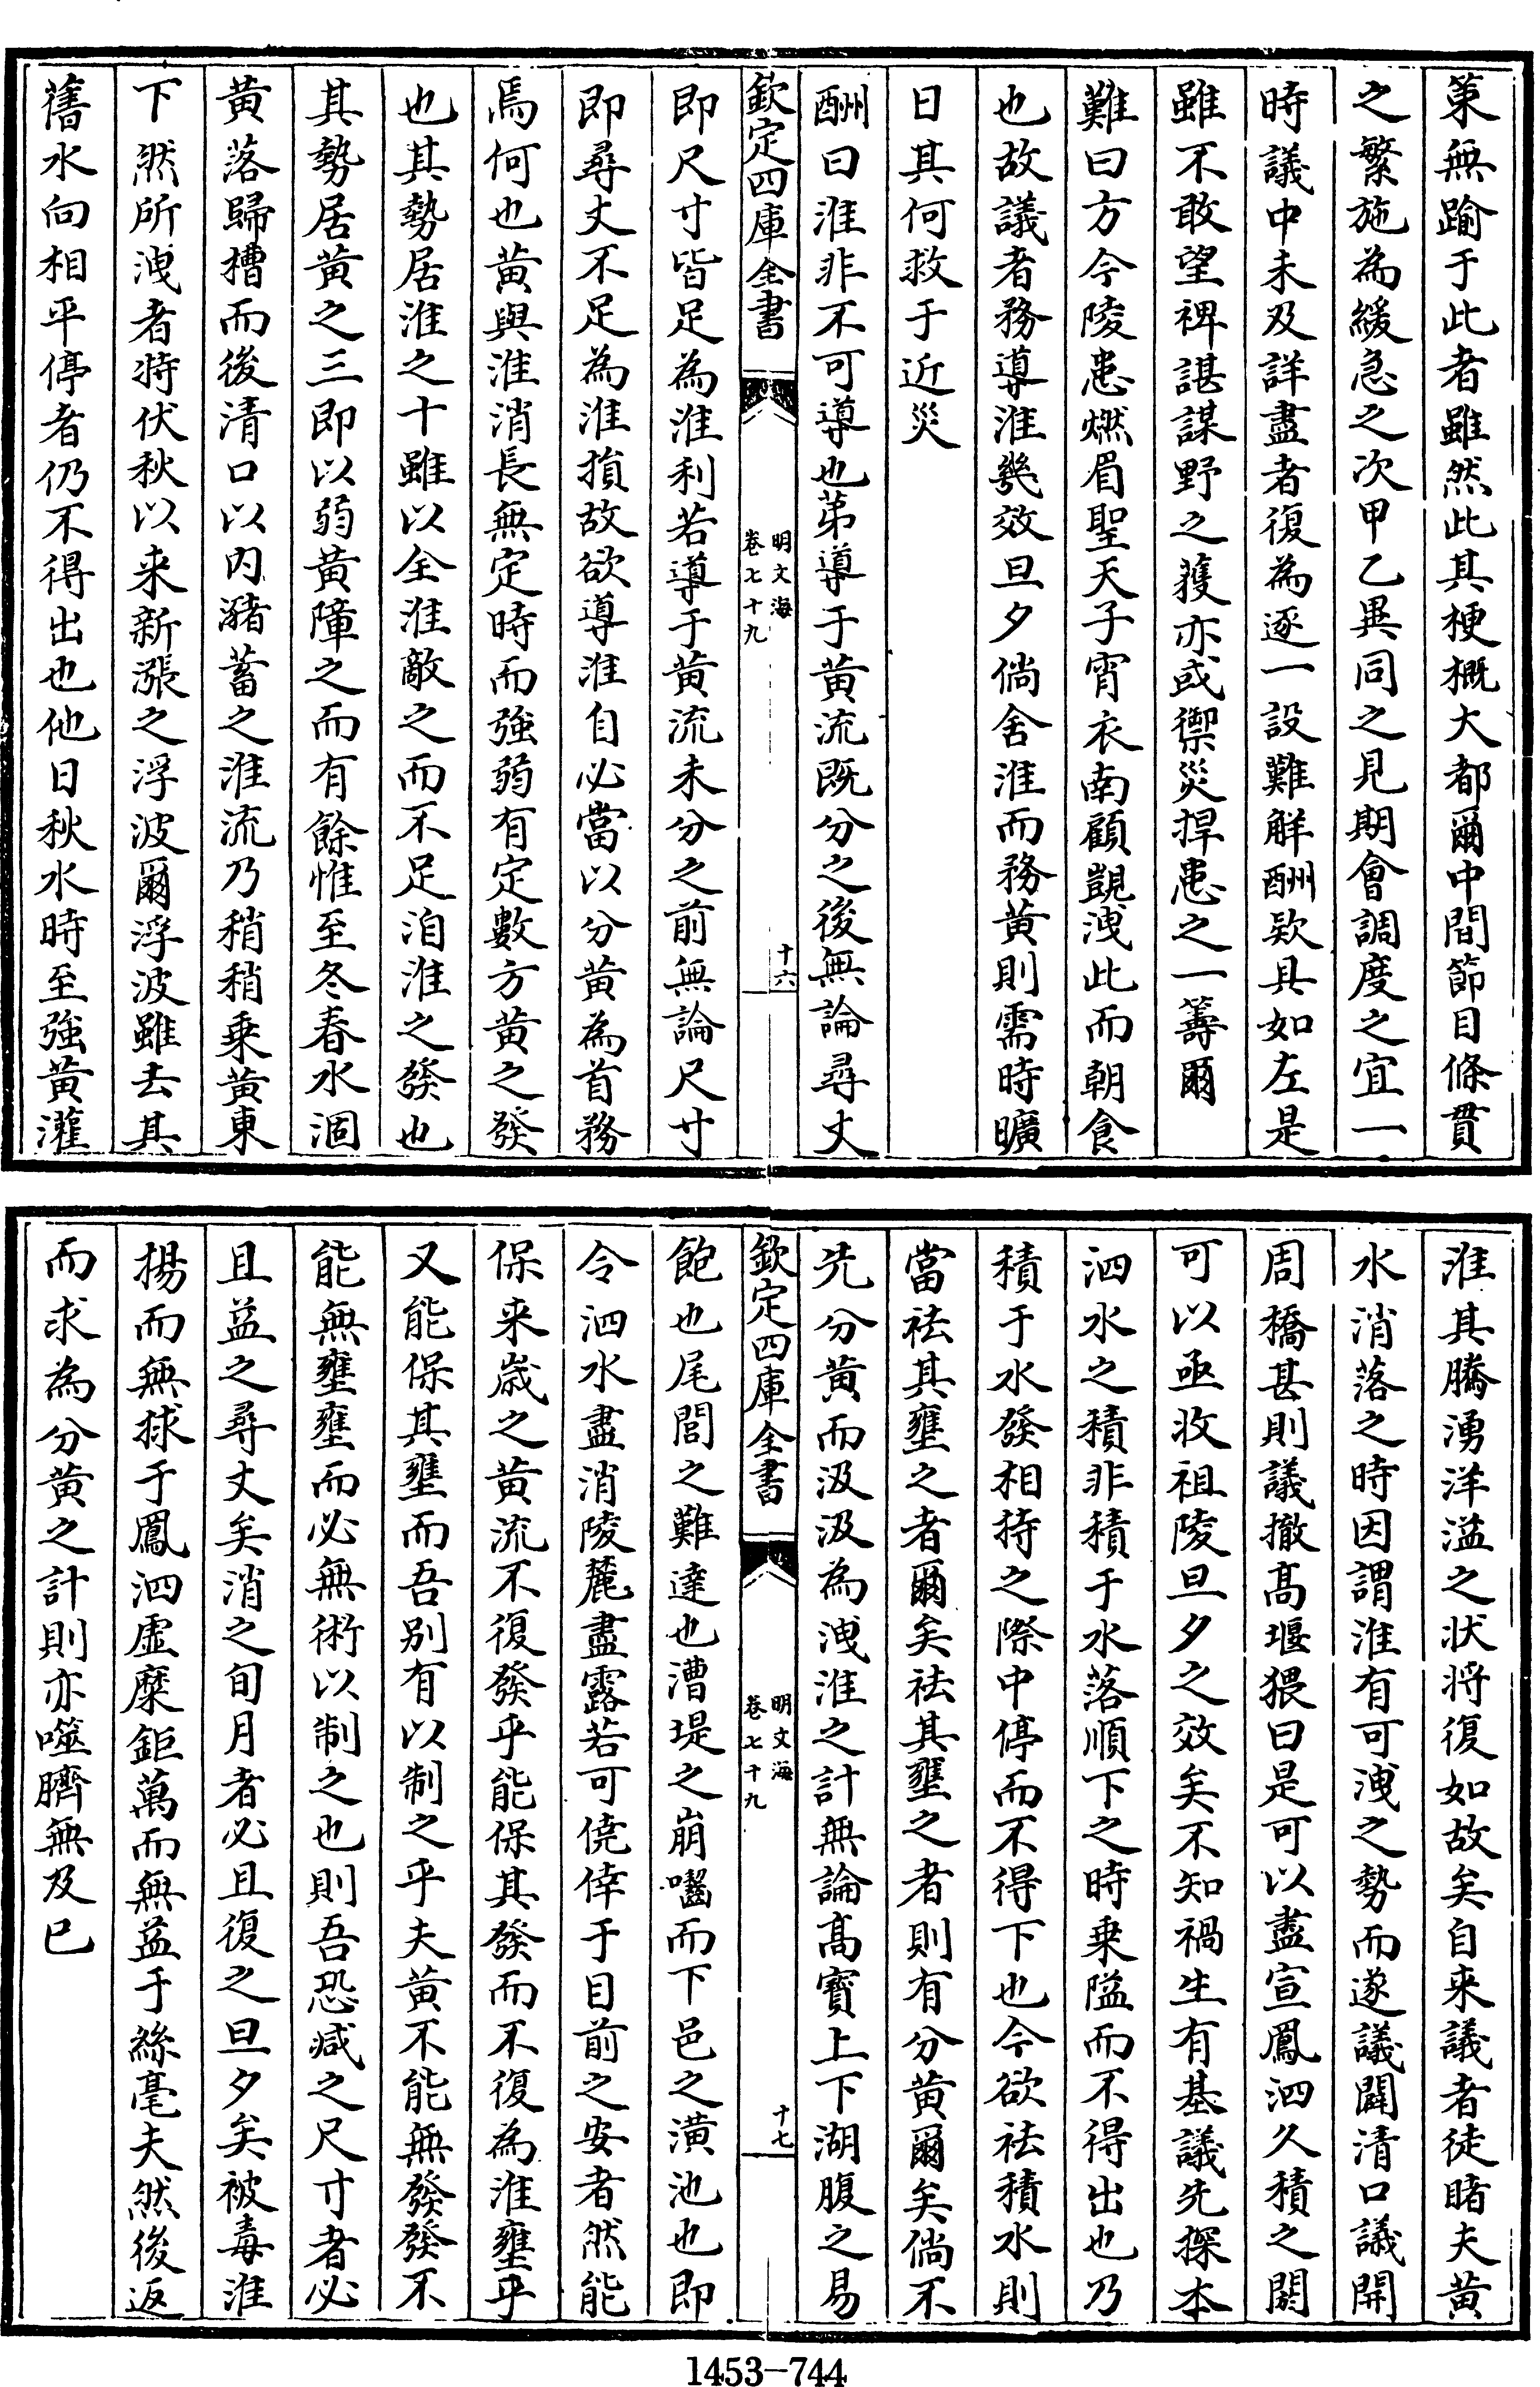 䇿無踰于此者雖然此其梗概大都爾中間節目條貫
之繁施為緩急之次甲乙異同之見期會調度之宜一
時議中未及詳盡者復為逐一設難解酬欵具如左是
雖不敢望裨諶謀野之獲亦或禦災捍患之一籌爾
難曰方今陵患燃眉聖天子宵衣南顧覬洩此而朝食
也故議者務導淮幾效旦夕倘舍淮而務黄則需時曠
日其何救于近災
酬曰淮非不可導也第導于黄流既分之後無論尋丈
欽定四庫全書
明文海
卷七十九
十六
即尺寸皆足為淮利若導于黄流未分之前無論尺寸
即尋丈不足為淮損故欲導淮自必當以分黄為首務
焉何也黄與淮消長無定時而強弱有定數方黄之發
也其勢居淮之十雖以全淮敵之而不足洎淮之發也
其勢居黄之三即以弱黄障之而有餘惟至冬春水涸
黄落歸槽而後清口以内瀦蓄之淮流乃稍稍乗黄東
下然所洩者將伏秋以来新漲之浮波爾浮波雖去其
舊水向相平停者仍不得出也他日秋水時至強黄灌
淮其騰湧洋溢之状將復如故矣自来議者徒睹夫黄
水消落之時因謂淮有可洩之勢而遂議闢清口議開
周橋甚則議撤髙堰猥曰是可以盡宣鳳泗久積之閼
可以亟收祖陵旦夕之效矣不知禍生有基議先探本
泗水之積非積于水落順下之時乗隘而不得出也乃
積于水發相持之際中停而不得下也今欲祛積水則
當祛其壅之者爾矣祛其壅之者則有分黄爾矣倘不
先分黄而汲汲為洩淮之計無論髙寳上下湖腹之易
欽定四庫全書
明文海
卷七十九
十七
飽也尾閭之難達也漕堤之崩囓而下邑之潢池也即
令泗水盡消陵麓盡露若可僥倖于目前之安者然能
保来嵗之黄流不復發乎能保其發而不復為淮壅乎
又能保其壅而吾别有以制之乎夫黄不能無發發不
能無壅壅而必無術以制之也則吾恐减之尺寸者必
且益之尋丈矣消之旬月者必且復之旦夕矣被毒淮
揚而無捄于鳳泗虚糜鉅萬而無益于絲毫夫然後返
而求為分黄之計則亦噬臍無及已
1453-744